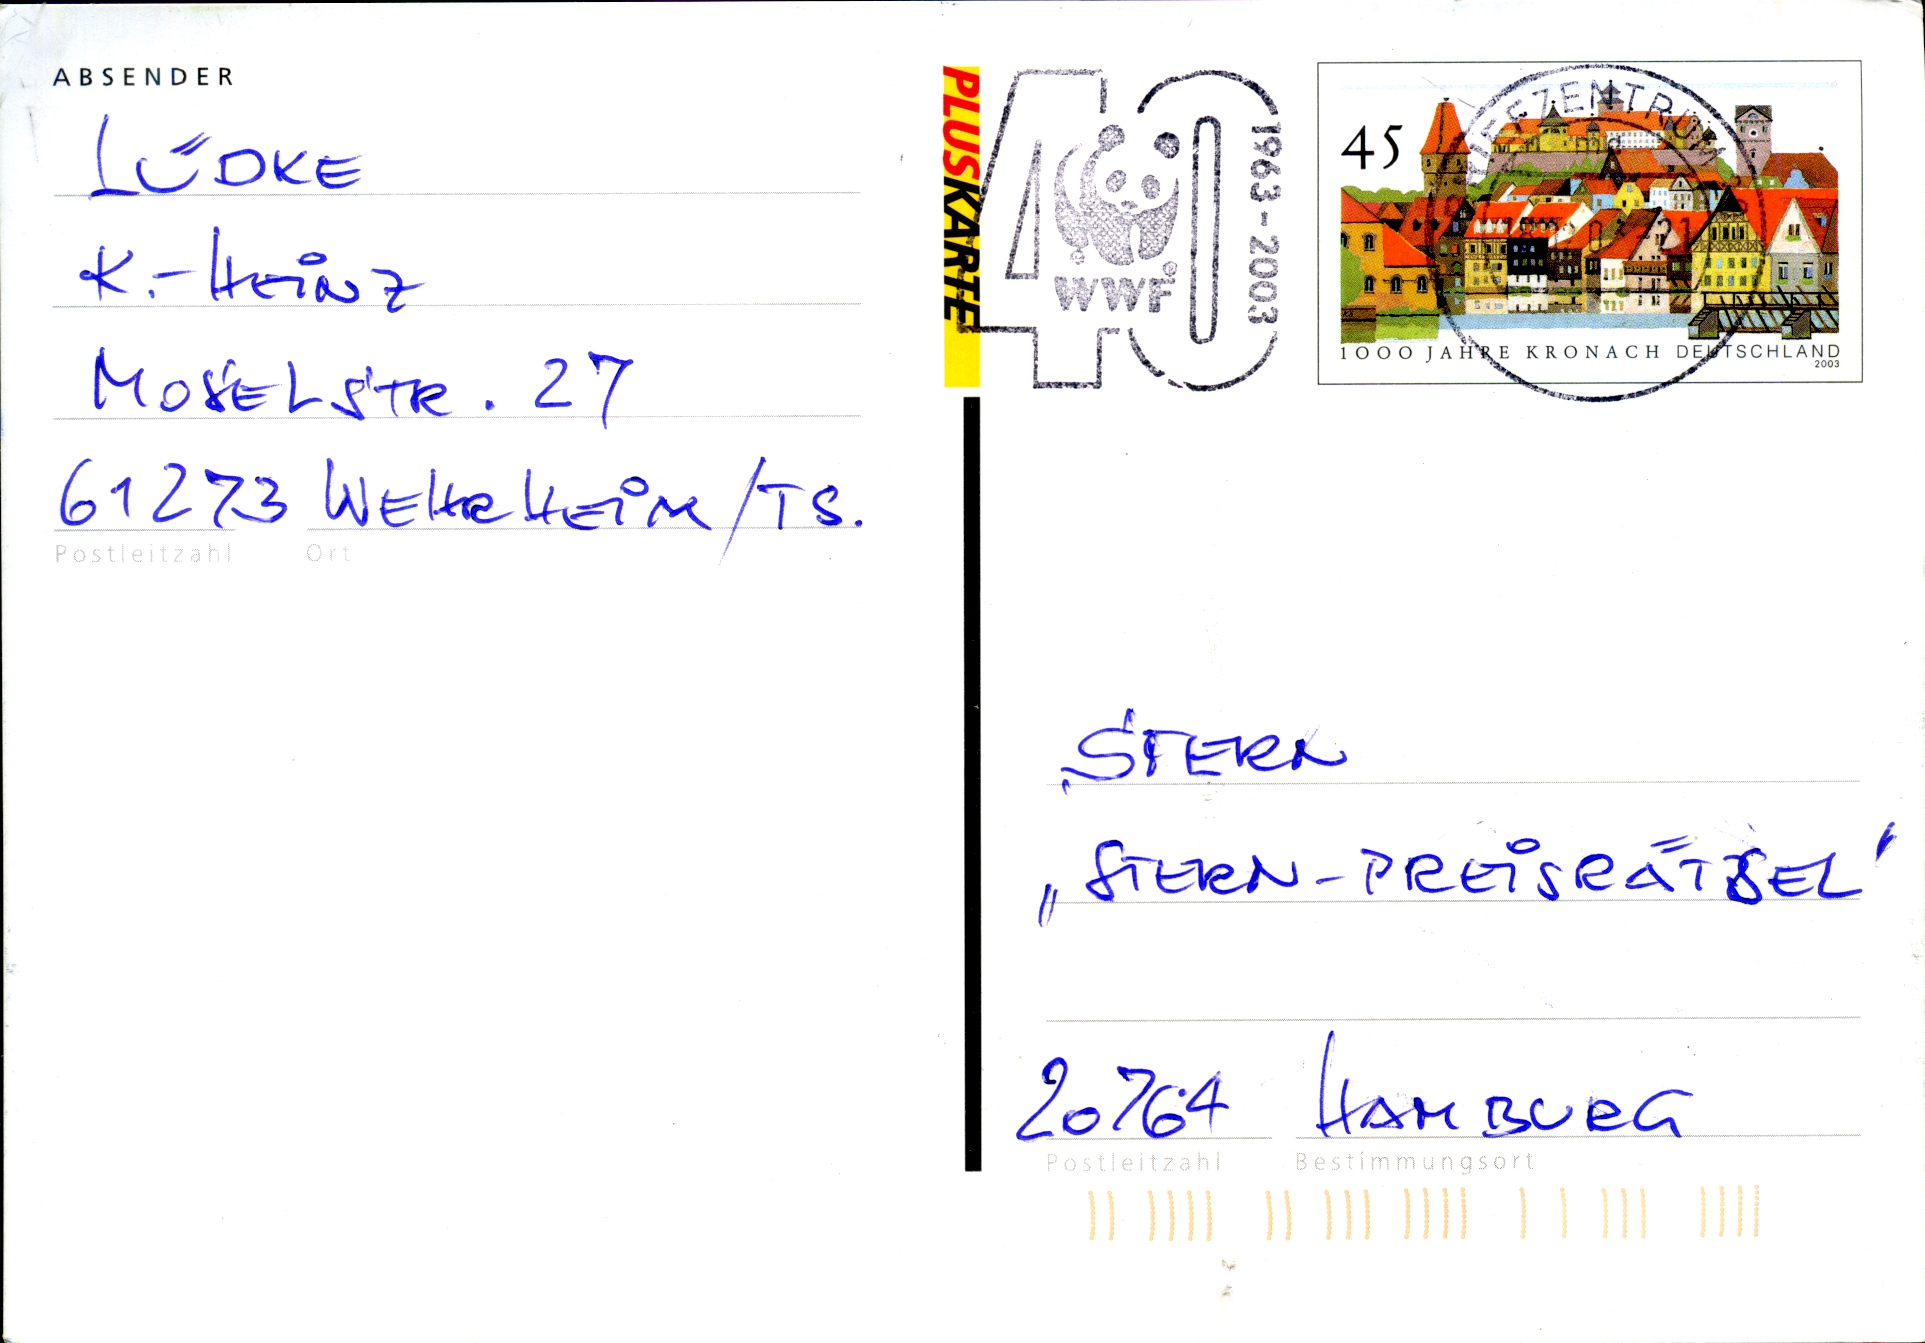 ABSENDER
LÜDKE
K.-HEINZ
MOSELSTR. 27
61273 WEHRHEIM/TS.
Postleitzahl Ort
PLUSKARTE
40
1963-2003
WWF®
BRIEFZENTRUM
45
1000 JAHRE KRONACH DEUTSCHLAND
2003
STERN
„STERN-PREISRÄTSEL"
20764 HAMBURG
Postleitzahl Bestimmungsort